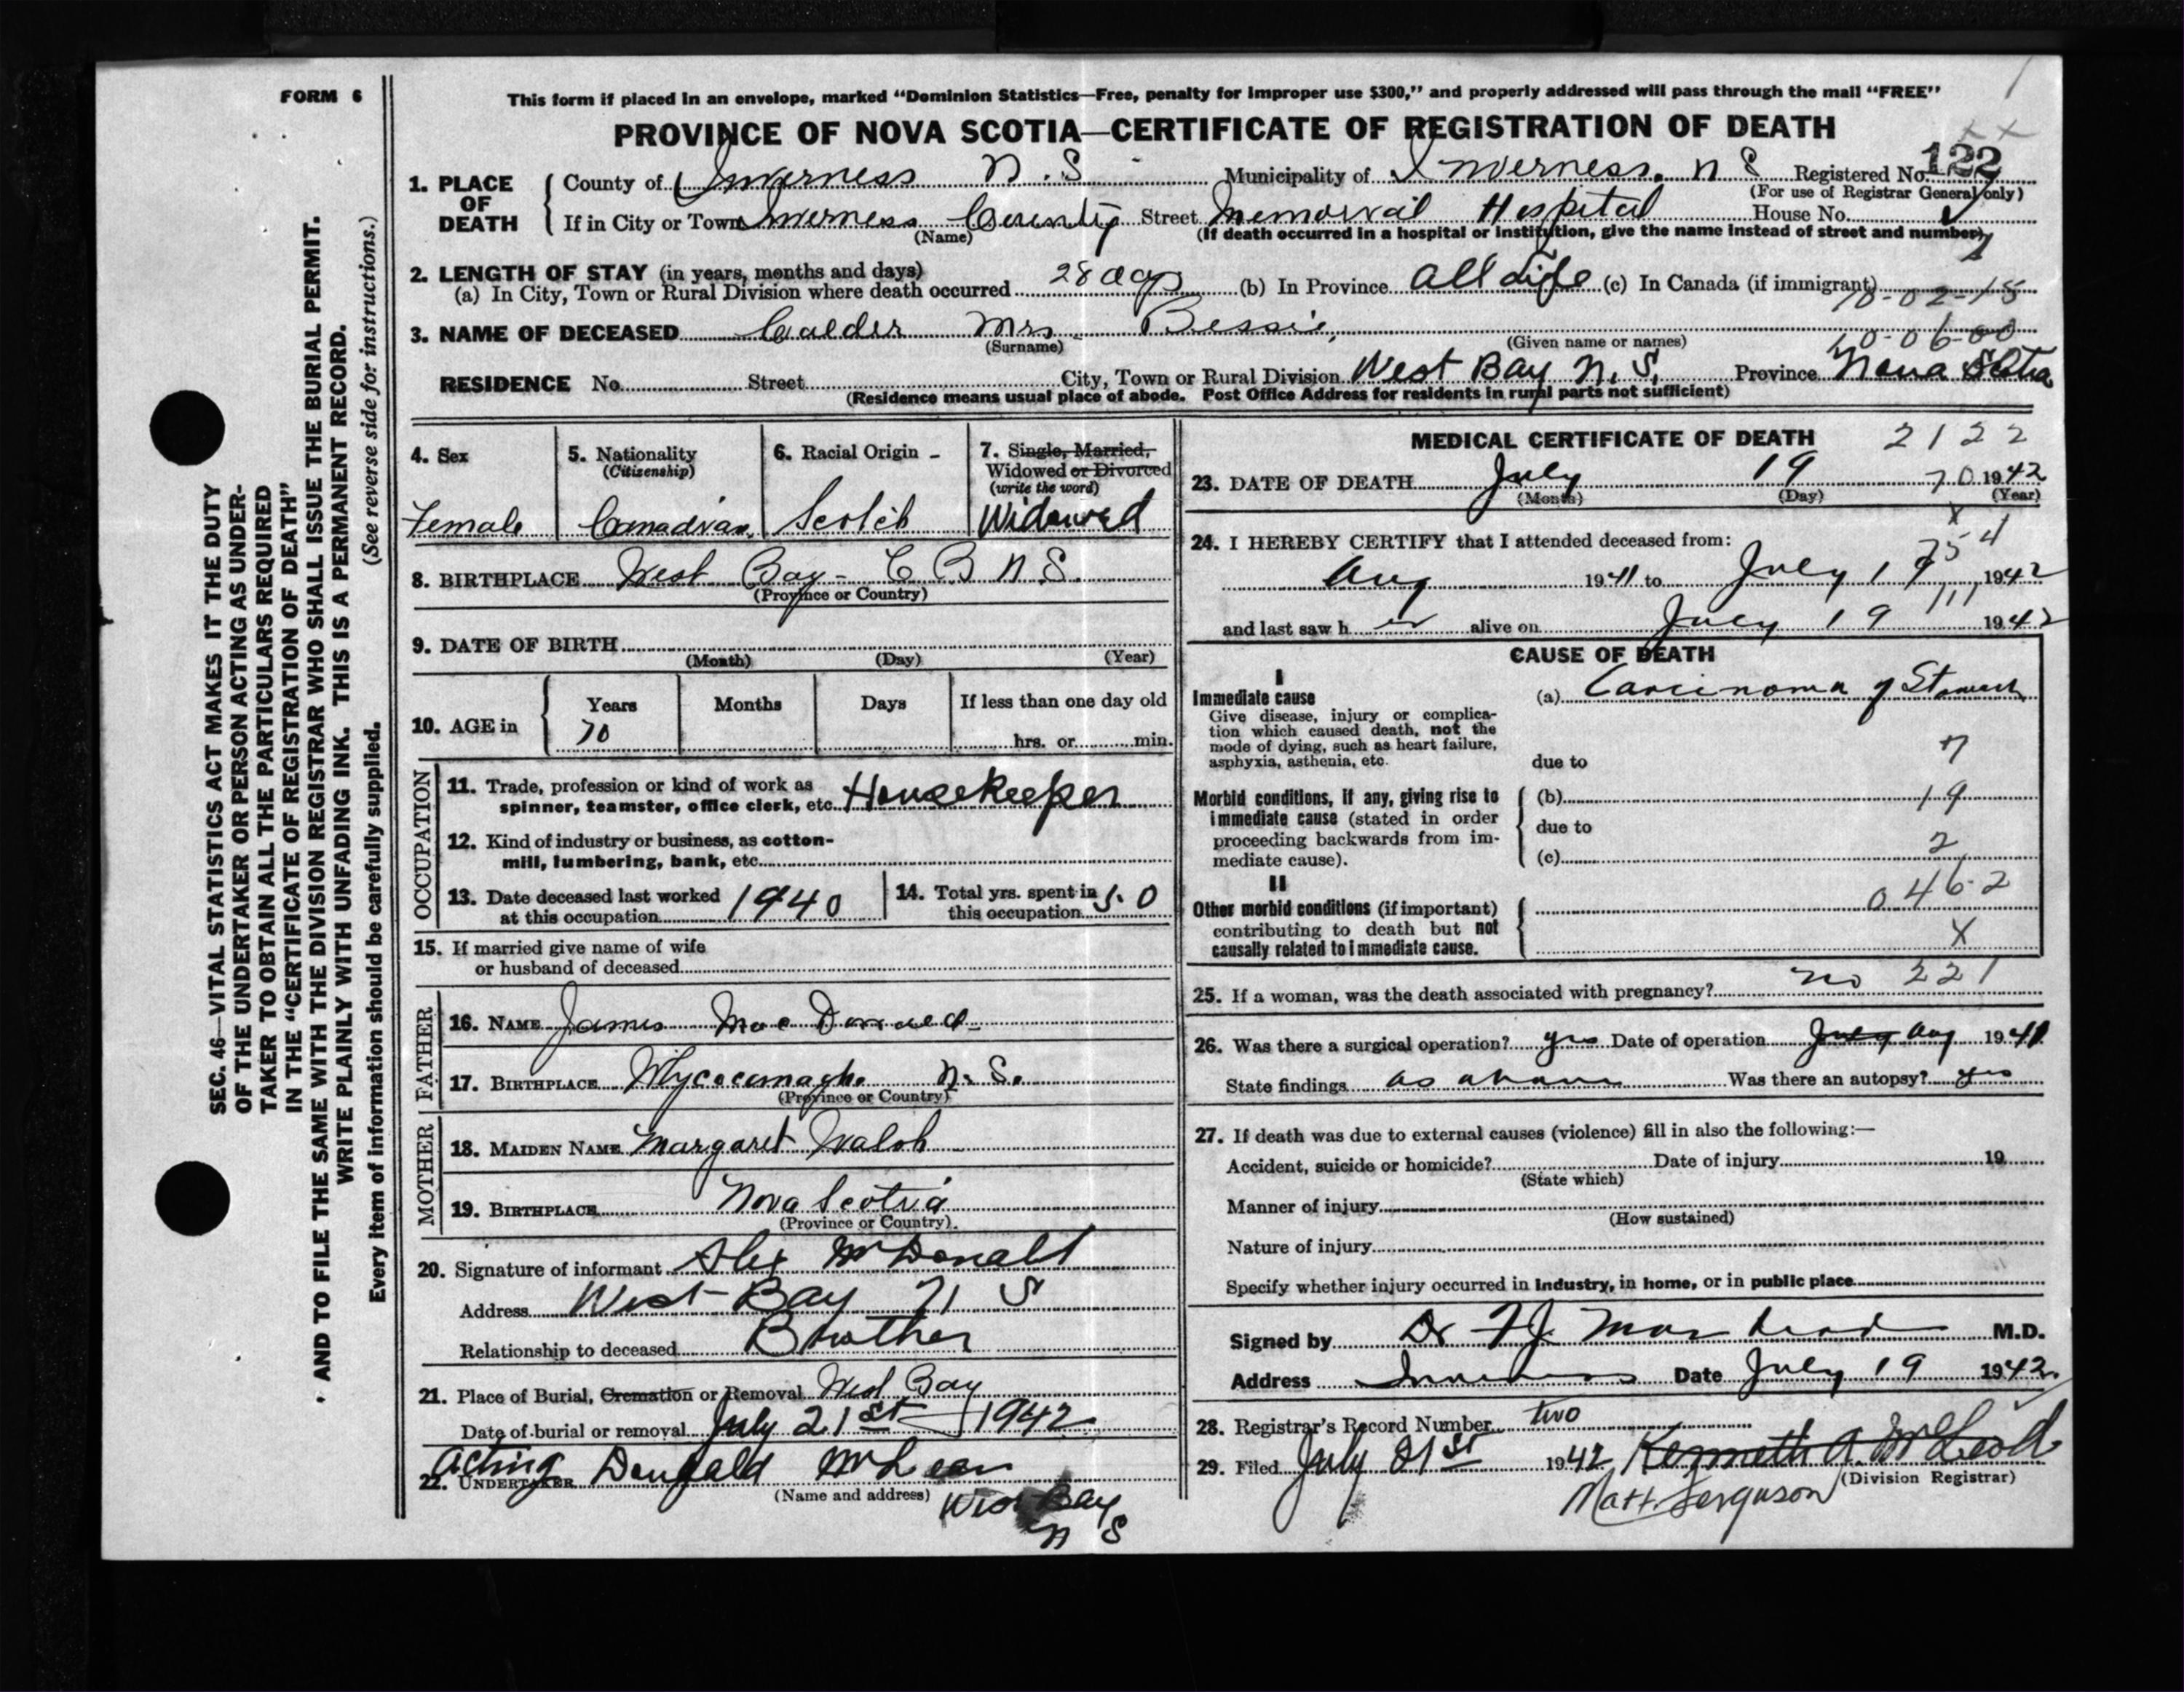 FORM 6
This form if placed in an envelope, marked “Dominion Statistics—Free, penalty for improper use $300,” and properly addressed will pass through the mail “FREE”
PROVINCE OF NOVA SCOTIA—CERTIFICATE OF REGISTRATION OF DEATH
1. PLACE OF DEATH
County of Inverness N.S Municipality of Inverness. N S Registered No. 122
(For use of Registrar General only)
If in City or Town Inverness County Street Memorial Hospital House No.
(Name) (If death occurred in a hospital or institution, give the name instead of street and number)
2. LENGTH OF STAY (in years, months and days)
(a) In City, Town or Rural Division where death occurred 28 days (b) In Province All Life (c) In Canada (if immigrant)
10-02-15
3. NAME OF DECEASED Calder Mrs Bessie,
(Surname) (Given name or names) 10-06-00
RESIDENCE No. Street City, Town or Rural Division West Bay N.S. Province Nova Scotia
(Residence means usual place of abode. Post Office Address for residents in rural parts not sufficient)
4. Sex
Female
5. Nationality
(Citizenship)
Canadian
6. Racial Origin
Scotch
7. Single, Married,
Widowed or Divorced
(write the word)
Widowed
8. BIRTHPLACE West Bay - C B N.S.
(Province or Country)
9. DATE OF BIRTH
(Month) (Day) (Year)
10. AGE in
Years Months Days If less than one day old
70 hrs. or min.
OCCUPATION
11. Trade, profession or kind of work as
spinner, teamster, office clerk, etc. Housekeeper
12. Kind of industry or business, as cotton-
mill, lumbering, bank, etc.
13. Date deceased last worked
at this occupation 1940
14. Total yrs. spent in
this occupation 50
15. If married give name of wife
or husband of deceased
FATHER
16. NAME James MacDonald
17. BIRTHPLACE Whycocomagh N.S.
(Province or Country)
MOTHER
18. MAIDEN NAME Margaret Walsh
19. BIRTHPLACE Nova Scotia
(Province or Country)
20. Signature of informant Alex McDonald
Address West Bay N S
Relationship to deceased Brother
21. Place of Burial, Cremation or Removal West Bay
Date of burial or removal July 21st 1942
Acting
22. UNDERTAKER Dougald McLean
(Name and address) West Bay
N S
MEDICAL CERTIFICATE OF DEATH 2122
23. DATE OF DEATH July 19 70 1942
(Month) (Day) (Year)
24. I HEREBY CERTIFY that I attended deceased from:
Aug 1941 to July 19 1942
and last saw h er alive on July 19 1942
CAUSE OF DEATH
I
Immediate cause
Give disease, injury or complica-
tion which caused death, not the
mode of dying, such as heart failure,
asphyxia, asthenia, etc.
(a) Carcinoma of Stomach
due to 7
Morbid conditions, if any, giving rise to
immediate cause (stated in order
proceeding backwards from im-
mediate cause).
(b) 19
due to
(c) 2
II
Other morbid conditions (if important)
contributing to death but not
causally related to immediate cause.
046-2
X
25. If a woman, was the death associated with pregnancy? no 221
26. Was there a surgical operation? yes Date of operation July Aug 1941
State findings as above Was there an autopsy? yes
27. If death was due to external causes (violence) fill in also the following:—
Accident, suicide or homicide? Date of injury 19
(State which)
Manner of injury
(How sustained)
Nature of injury
Specify whether injury occurred in industry, in home, or in public place
Signed by Dr M.D.
Address Inverness Date July 19 1942
28. Registrar's Record Number two
29. Filed July 21st 1942 Kenneth A. McLeod
(Division Registrar)
Matt. Ferguson
SEC. 46—VITAL STATISTICS ACT MAKES IT THE DUTY
OF THE UNDERTAKER OR PERSON ACTING AS UNDER-
TAKER TO OBTAIN ALL THE PARTICULARS REQUIRED
IN THE “CERTIFICATE OF REGISTRATION OF DEATH”
AND TO FILE THE SAME WITH THE DIVISION REGISTRAR WHO SHALL ISSUE THE BURIAL PERMIT.
WRITE PLAINLY WITH UNFADING INK. THIS IS A PERMANENT RECORD.
Every item of information should be carefully supplied. (See reverse side for instructions.)